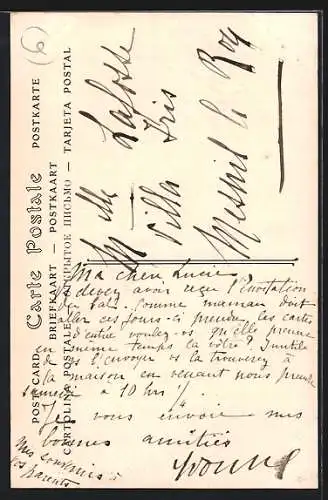 (6)
Carte Postale
POSTKARTE
POST-CARD
BRIEFKAART — POSTKAART
CARTOLINA POSTALE
ОТКРЫТОЕ ПИСЬМО — TARJETA POSTAL
Mlle Lafosse
Villa Iris
Mesnil le Roy
Ma chère Lucie
Vs devez avoir reçu l'invitation
du bal. Comme maman doit
aller ces jours-ci prendre les cartes
d'entrée voulez-vs qu'elle prenne
en même temps la vôtre? Inutile
de vs l'envoyer vs la trouverez à
la maison en venant nous prendre
samedi à 10 hrs!
Je vous envoie mes
bonnes amitiés
Yvonne
Mes souvenirs à
vos Parents